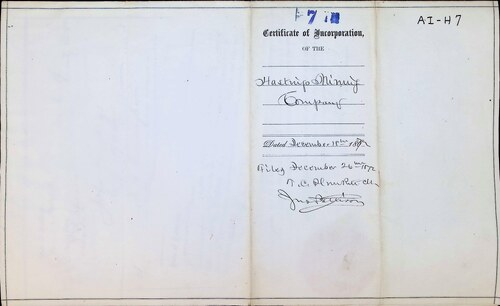 AI-H7
Certificate of Incorporation,
OF THE
Hastings Mining
Company
Dated December 15th 1872
Filed December 26th 1872